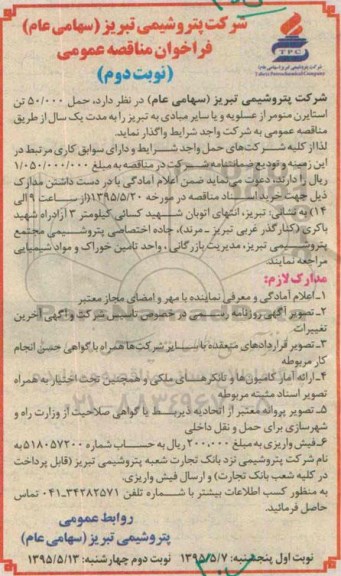 شرکت پتروشیمی تبریز (سهامی عام)
فراخوان مناقصه عمومی
(نوبت دوم)
TPC
شرکت پتروشیمی تبریز (سهامی عام)
Tabriz Petrochemical Company
شرکت پتروشیمی تبریز (سهامی عام) در نظر دارد، حمل ۵۰/۰۰۰ تن
استایرن منومر از عسلویه و یا سایر مبادی به تبریز را به مدت یک سال از طریق
مناقصه عمومی به شرکت واجد شرایط واگذار نماید.
لذا از کلیه شرکت‌های حمل واجد شرایط و دارای سوابق کاری مرتبط در
این زمینه و تودیع ضمانتنامه شرکت در مناقصه به مبلغ ۱/۰۵۰/۰۰۰/۰۰۰
ریال را دارند، دعوت می‌نماید ضمن اعلام آمادگی با در دست داشتن مدارک
ذیل جهت خرید اسناد مناقصه در مورخه ۱۳۹۵/۵/۲۰ (از ساعت ۹ الی
۱۴) به نشانی: تبریز، انتهای اتوبان شهید کسائی کیلومتر ۳ آزادراه شهید
باکری (کنارگذر غربی تبریز ـ مرند)، جاده اختصاصی پتروشیمی مجتمع
پتروشیمی تبریز، مدیریت بازرگانی، واحد تامین خوراک و مواد شیمیایی
مراجعه نمایند.
مدارک لازم:
۱ـ اعلام آمادگی و معرفی نماینده با مهر و امضای مجاز معتبر
۲ـ تصویر آگهی روزنامه رسمی در خصوص تاسیس شرکت و آگهی آخرین
تغییرات
۳ـ تصویر قراردادهای منعقده با سایر شرکت‌ها همراه با گواهی حسن انجام
کار مربوطه
۴ـ ارائه آمار کامیون‌ها و تانکرهای ملکی و همچنین تحت اختیار به همراه
تصویر اسناد مثبته مربوطه
۵ـ تصویر پروانه معتبر از اتحادیه ذیربط یا گواهی صلاحیت از وزارت راه و
شهرسازی برای حمل و نقل داخلی
۶ـ فیش واریزی به مبلغ ۲۰۰.۰۰۰ ریال به حساب شماره ۵۱۸۰۵۷۲۰۰ به
نام شرکت پتروشیمی نزد بانک تجارت شعبه پتروشیمی تبریز (قابل پرداخت
در کلیه شعب بانک تجارت) و ارسال فیش واریزی.
به منظور کسب اطلاعات بیشتر با شماره تلفن ۳۴۲۸۲۵۷۱-۰۴۱ تماس
حاصل فرمائید.
روابط عمومی
پتروشیمی تبریز (سهامی عام)
نوبت اول پنجشنبه: ۱۳۹۵/۵/۷ نوبت دوم چهارشنبه: ۱۳۹۵/۵/۱۳